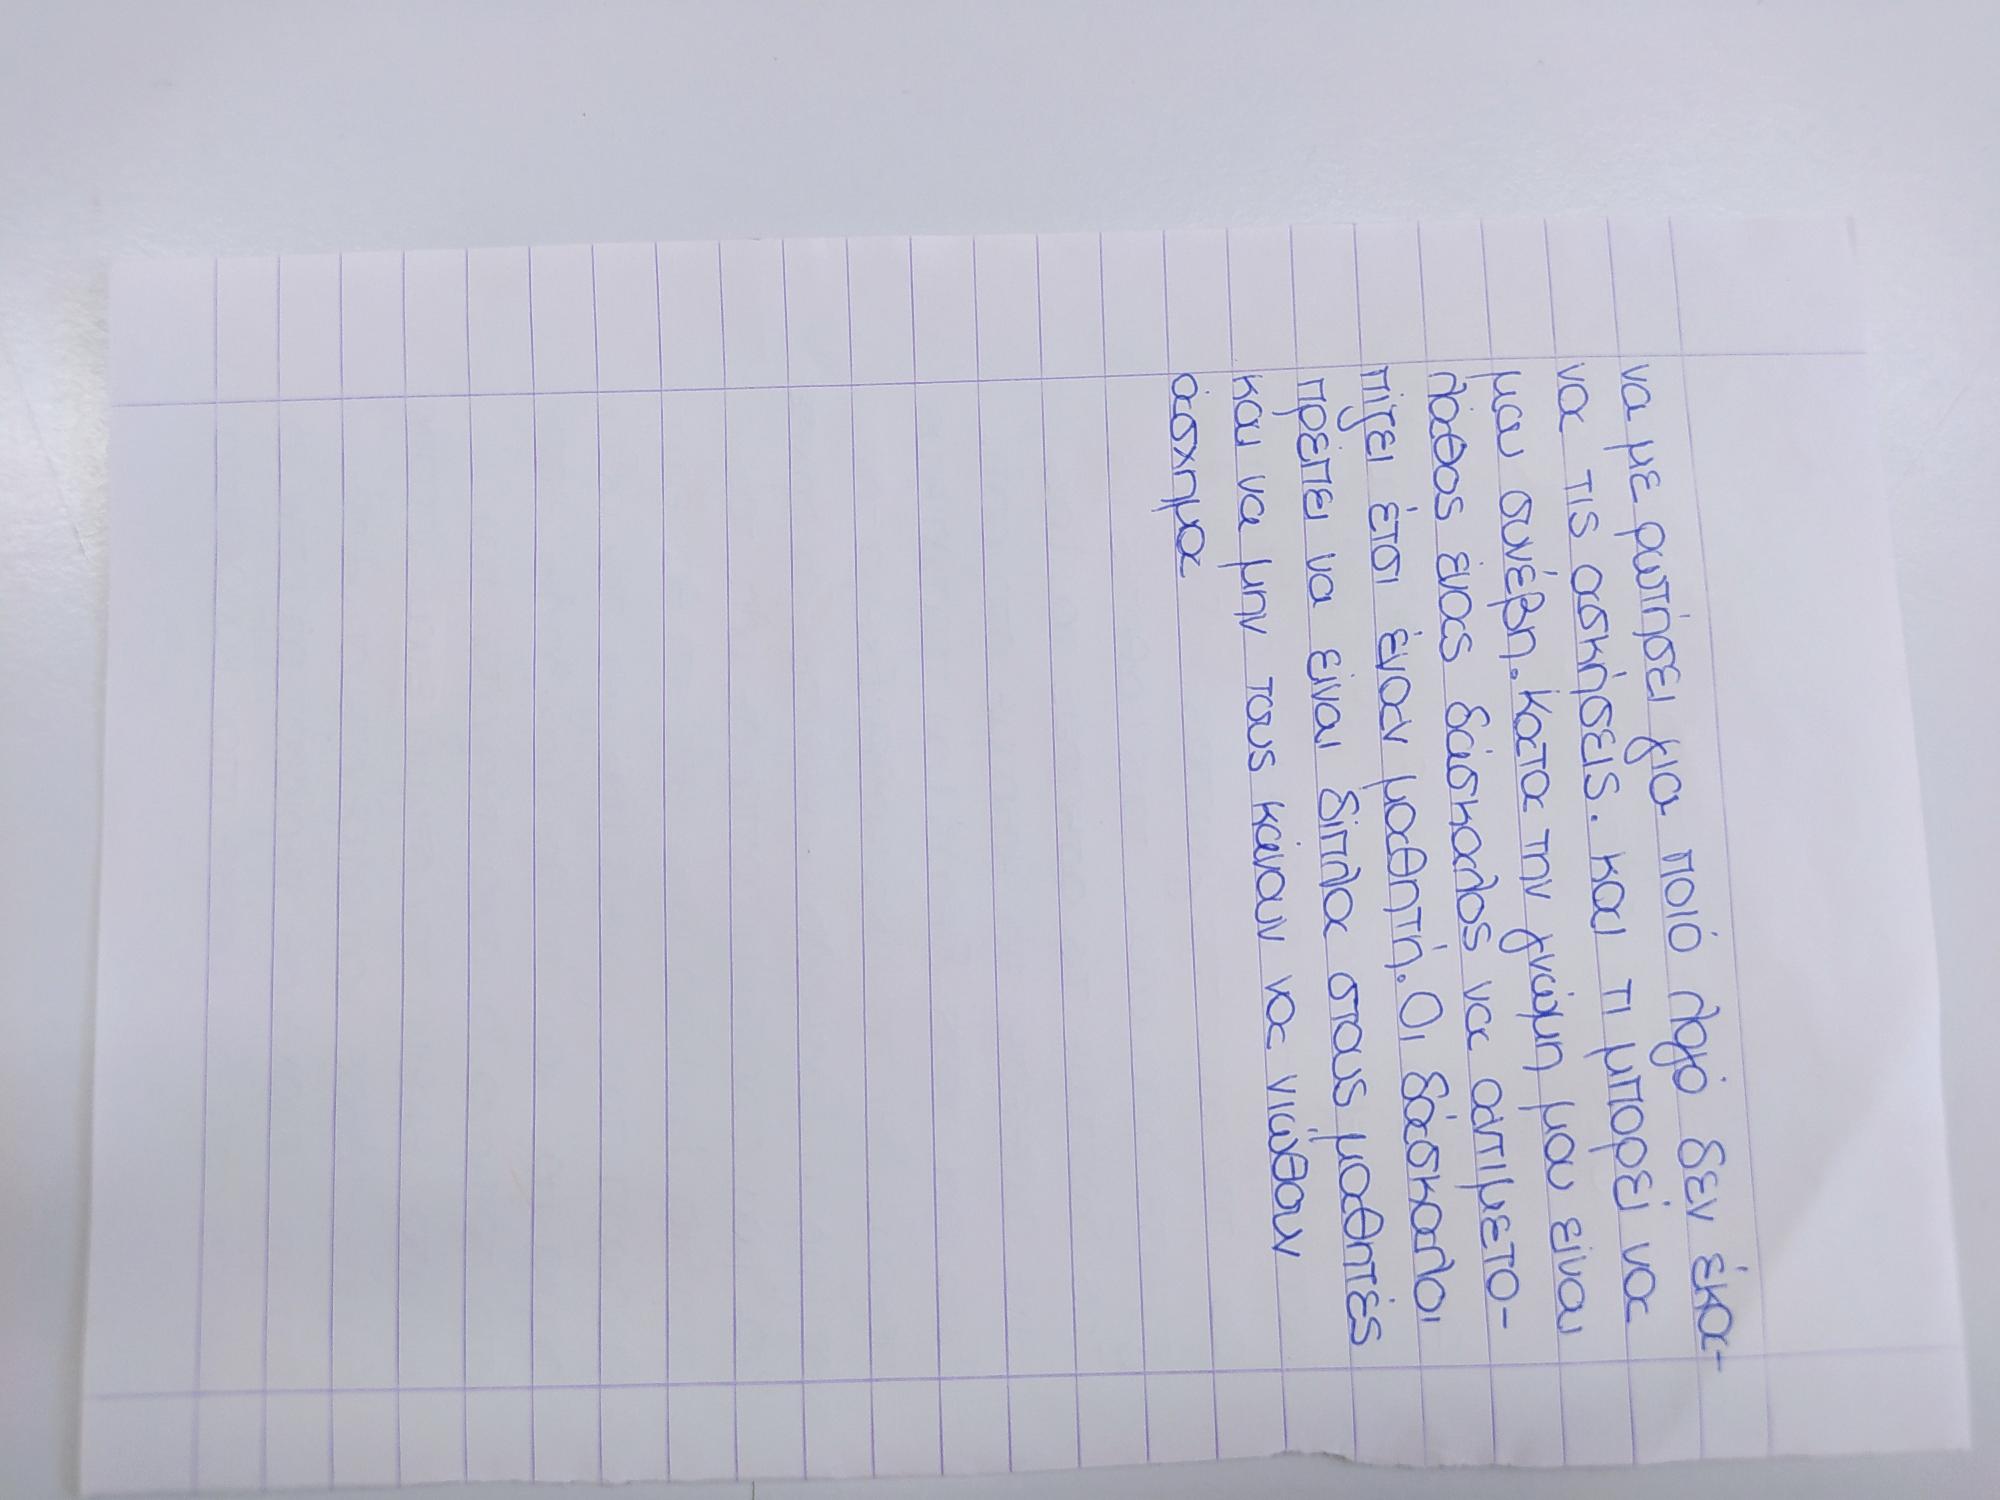 να με ρωτήσει για ποιό λόγο δεν έκα-
να τις ασκήσεις. και τι μπορεί να
μου συνέβη. Κατα την γνώμη μου είναι
λάθος ένας δάσκαλος να αντιμετο-
πίζει έτσι έναν μαθητή. Οι δάσκαλοι
πρέπει να είναι δίπλα στους μαθητές
και να μην τους κάνουν να νιώθουν
άσχημα